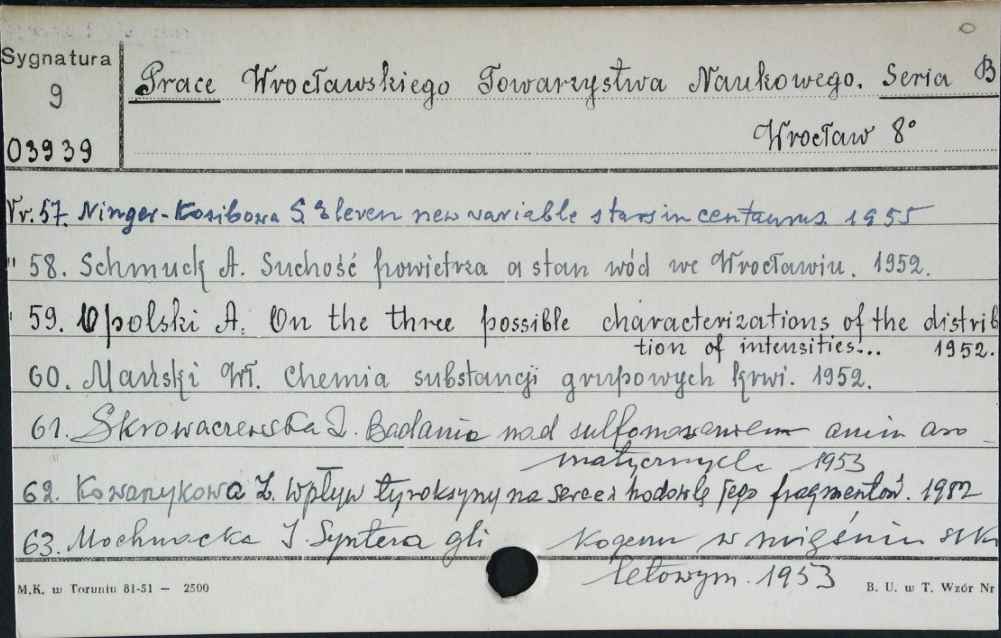 Sygnatura
9
03939
Prace Wrocławskiego Towarzystwa Naukowego. Seria B
Wrocław 8°
Nr. 57. Ninger-Kosibowa S. Eleven new variable stars in centaurus 1955
" 58. Schmuck A. Suchość powietrza a stan wód we Wrocławiu. 1952.
" 59. Opolski A. On the three possible characterizations of the distrib
tion of intensities... 1952.
60. Mański Wł. Chemia substancji grupowych krwi. 1952.
61. Skrowaczewska Z. Badania nad sulfonowaniem amin aro
matycznych 1953
62. Kowarzykowa Z. Wpływ tyroksyny na serce i hodowlę jego fragmentów. 1952
63. Mochnacka I. Synteza gli kogenu w mięśniu szk
letowym. 1953
M.K. w Toruniu 81-51 — 2500
B. U. w T. Wzór Nr